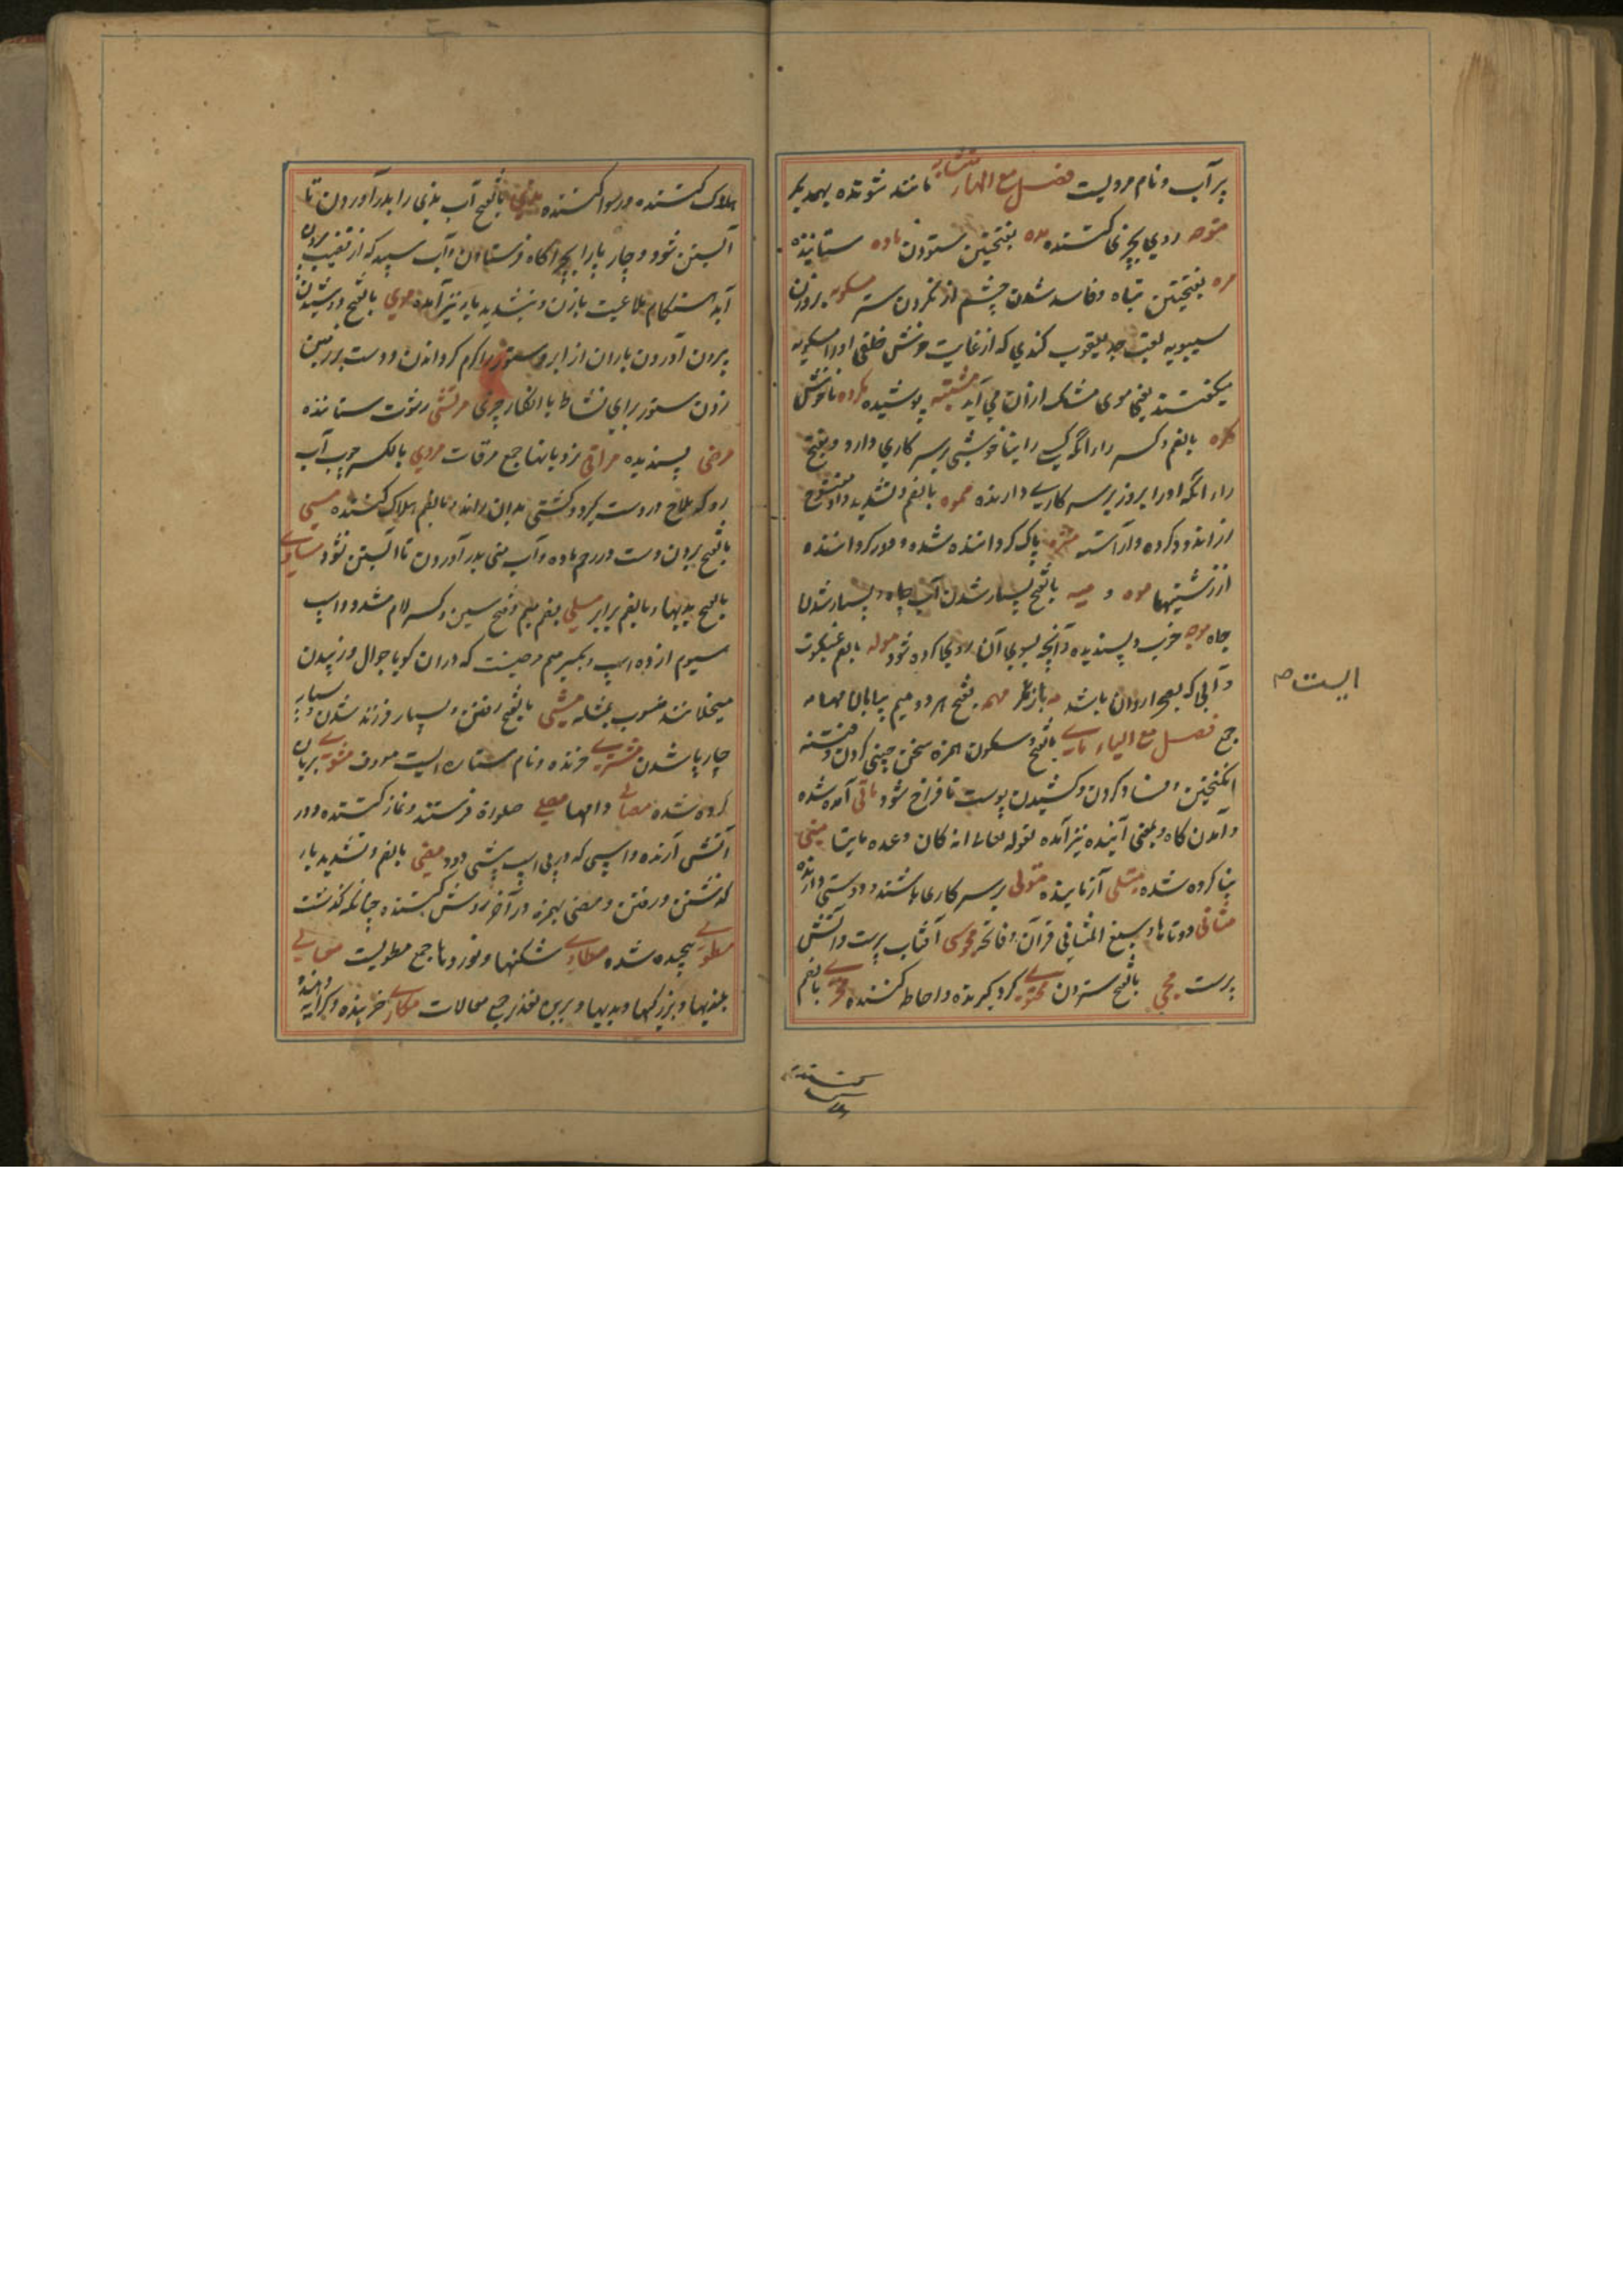 پر آب و نام مردیست فصل مع الهاء متشابه مانند شونده بهمدیگر
متوجه روی بچیزی کننده مده بفتحتین ستودن ماده ستاینده
مره بفتحتین تباه و فاسد شدن چشم از نکردن سرمه مسکویه بر وزن
سیبویه لقب جد یعقوب کندی که از غایت خوش خلقی او را مسکویه
میگفتند یعنی بوی مشک ازان می آید مشتبه پوشیده مکروه ناخوش
مکره بالضم و کسر راء انکه کسی را بناخوشی بر سر کاری دارد و بفتح
راء انکه او را بزور بر سر کاری دارند مموه بالضم و تشدید واو مفتوح
زراندود کرده و آراسته منزه پاک گردانیده شده و دور گردانیده
از زشتیها موه و میه بالفتح بسیار شدن آب چاه و بسیار شدن
چاه موجه خوب و پسندیده و آنچه بسوی آن روی کرده شود موله بالضم عنکبوت
و آبی که بصحرا روان باشد مه باز مگر مهمه بفتح هر دو میم بیابان مهامه
جمع فصل مع الیاء مأی بالفتح و سکون همزه سخن چینی کردن و فتنه
انگیختن و فساد کردن و کشیدن پوست تا فراخ شود مأتی آمده شده
و آمدن گاه و بمعنی آینده نیز آمده لقوله تعالی انه کان وعده مأتیا مبنی
بنا کرده شده مبتلی آزماینده متولی بر سر کارها باشنده و دوستی دارنده
مثانی دوتاها و سبع المثانی قرآن و فاتحه مجوسی آفتاب پرست و آتش
پرست محی بالفتح ستردن محتوی گرد گیرنده و احاطه کننده مخزی بالضم
ایست
هلاک کننده و رسوا کننده مذی بالفتح آب مذی را بدر آوردن تا
آبستن شود و چارپا را بچراگاه فرستادن و آب سپید که از قضیب بیرون
آید هنگام ملاعبت با زن و بتشدید یا نیز آمده مری بالفتح دوشیدن
بیرون آوردن باران از ابر و ستور را گرم گردانیدن و دست بر زمین
زدن ستور برای نشاط یا انکار چیزی مرتشی رشوت ستاننده
مرضی پسندیده مراقی نردبانها جمع مرقات مردی بالکسر چوب آب
رو که ملاح در دست گیرد و کشتی بدان راند و بالضم هلاک کننده مسی
بالفتح بردن دست در رحم ماده و آب منی بدر آوردن تا آبستن نشود مساوی
بالفتح بدیها و بالضم برابر مسلی بضم میم و فتح سین و کسر لام مشدد اسپ
سیوم از ده اسپ و بکسر میم رصینت که دران گویا جوال وزیدن
میخلانند منسوب بمسله مشی بالفتح رفتن و بسیار فرزند شدن و بسیار
چارپا شدن مشتری خرنده و نام ستاره ایست معروف مشوی بریان
کرده شده مصالی دامها مصلی صلوة فرستند و نماز کننده و در
آتش آرنده و اسپی که در پی اسپ پیشی دود مضی بالضم و تشدید یا
گذشتن و رفتن و مضی بهمزه در آخر روشن کننده چنانکه گذشت
مطوی پیچیده شده مطاوی شکنها و نوردها جمع مطویست معالی
بلندیها و بزرگیها و بدیها و برین تقدیر جمع معالات مکاری خرینده و کرایه دهنده